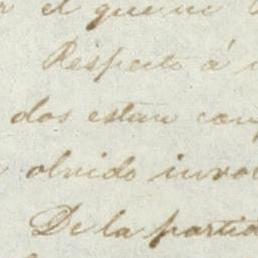 el que no
Respecto á
dos estan
olvido
De la partid